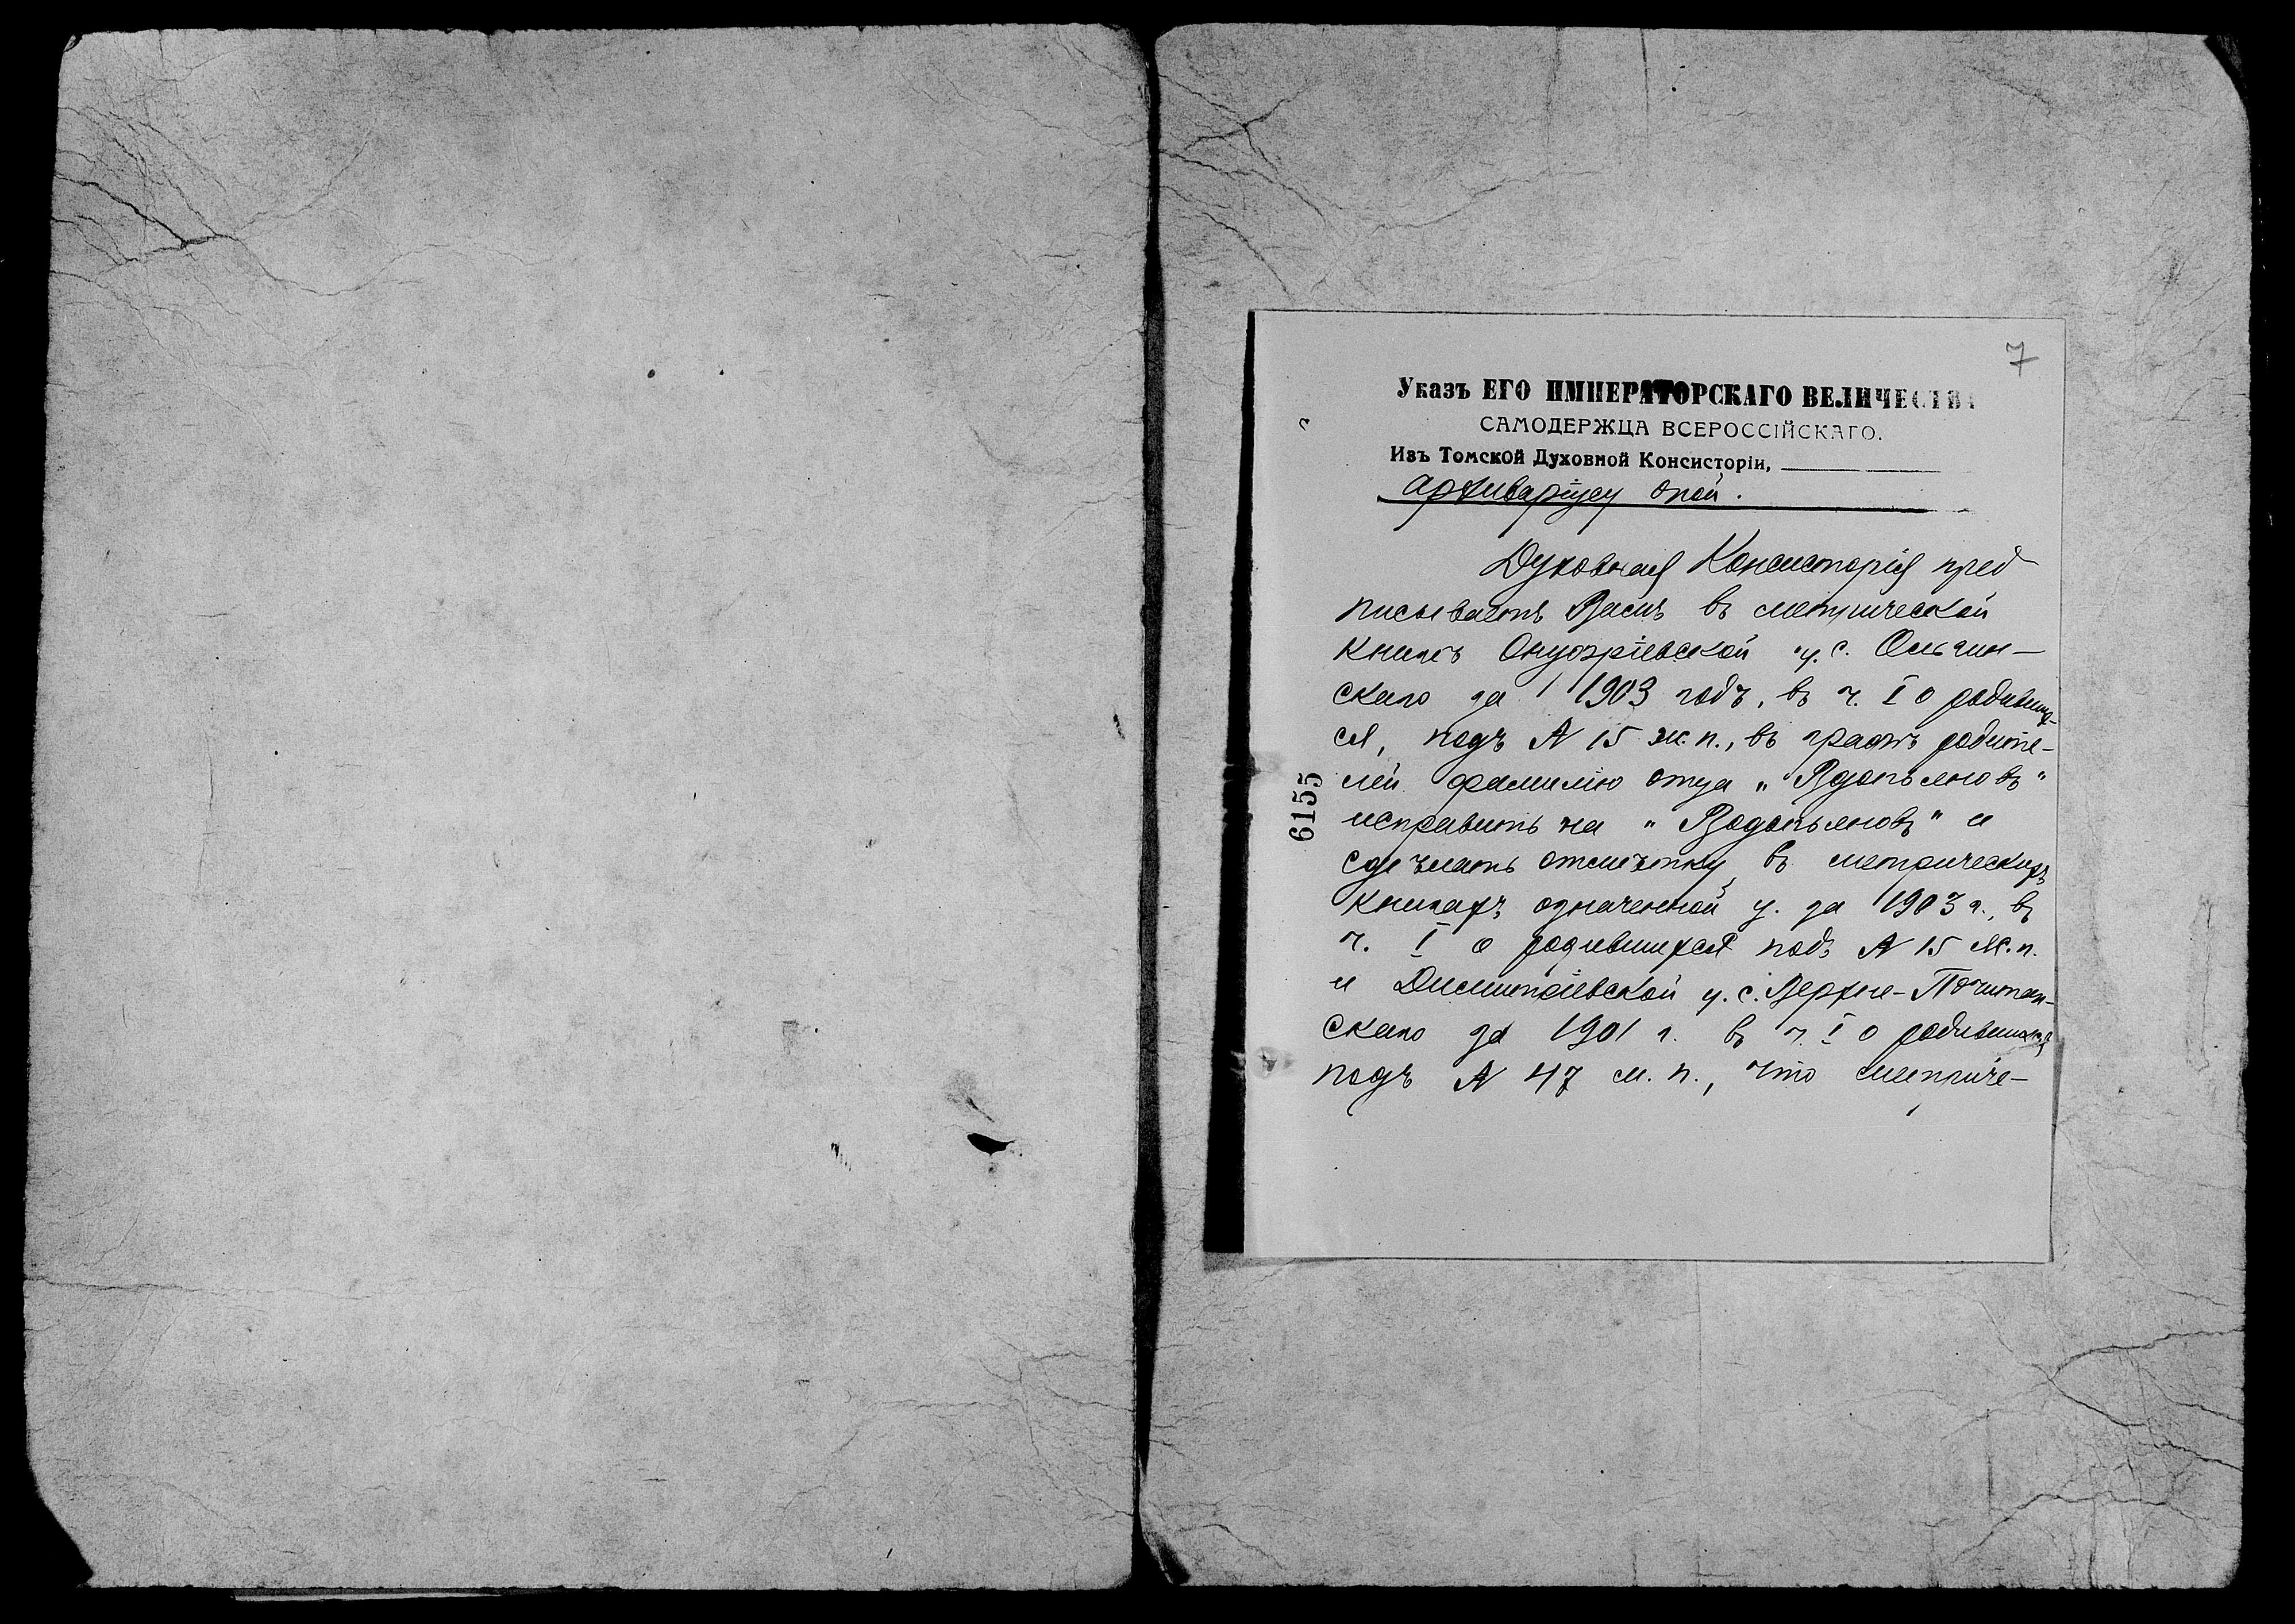 7
Указъ ЕГО ИМПЕРАТОРСКАГО ВЕЛИЧЕСТВА
САМОДЕРЖЦА ВСЕРОССІЙСКАГО.
Изъ Томской Духовной Консисторіи,
архиваріусу оной.
Духовная Консисторія пред
писываетъ Вамъ въ метрической
книгѣ Онуфріевской ц. с. Ольгин-
скаго за 1903 годъ, въ ч. I о родивших-
ся, подъ № 15 ж. п., въ графѣ родите-
лей фамилію отца „Вдопьяновъ"
исправить на „Водопьяновъ" и
сдѣлать отмѣтку въ метрическихъ
книгахъ означенной ц. за 1903 г., въ
ч. I о родившихся подъ № 15 ж. п.
и Димитріевской ц. с. Верхне-Почитан-
скаго за 1901 г. въ ч. I о родившихся
подъ № 47 м. п., что метриче-
6155